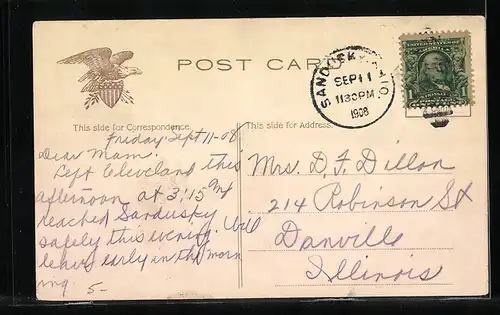 POST CARD
SANDUSKY, OHIO.
SEP 11
11 30 PM
1908
1 1
This side for Correspondence.
This side for Address.
Friday Sept 11-08
Dear Mam.
Left Cleveland this
afternoon at 3:15
reached Sandusky
safely this evening. Will
leave early in the morn
ing. 5-
Mrs. D. F. Dillon
214 Robinson St
Danville
Illinois